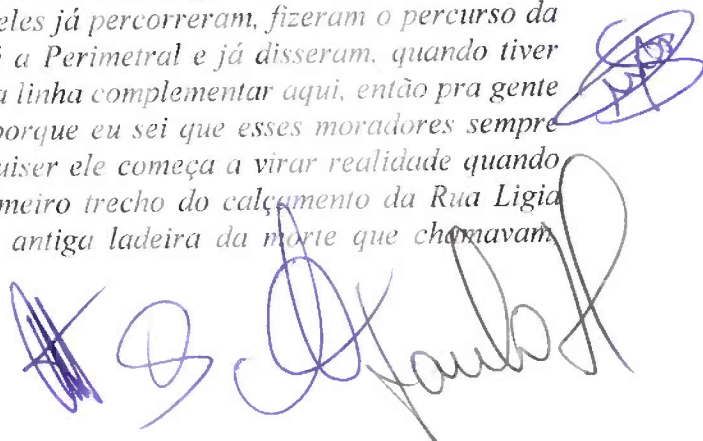 eles já percorreram, fizeram o percurso da
a Perimetral e já disseram, quando tiver
a linha complementar aqui, então pra gente
porque eu sei que esses moradores sempre
uiser ele começa a virar realidade quando
meiro trecho do calçamento da Rua Ligia
antiga ladeira da morte que chamavam